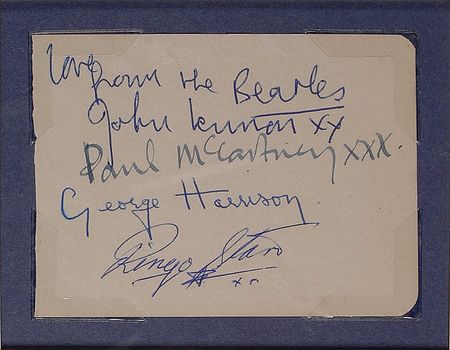 love from the Beatles
John Lennon xx
Paul McCartney XXX.
George Harrison.
Ringo Starr
xx